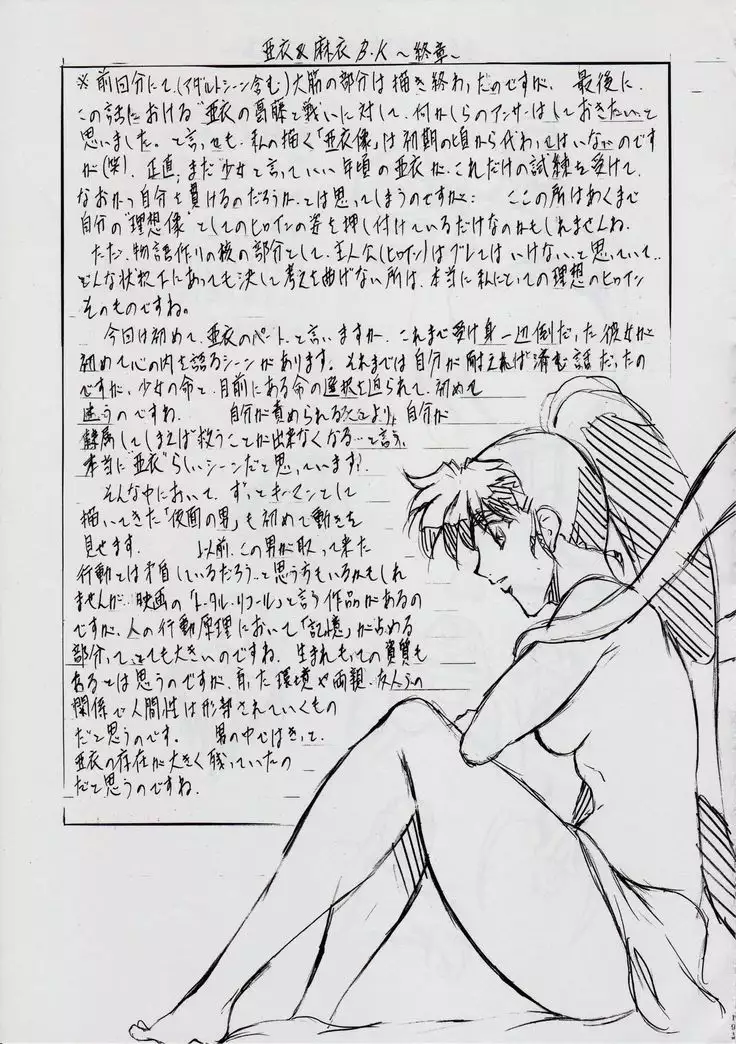 亜衣&麻衣 B.K ～終章～
※前回分にて、(アダルトシーン含む)大筋の部分は描き終わったのですが、 最後に
この話における"亜衣の葛藤と戦い"に対して、何かしらのアンサーはしておきたいと
思いました。と言っても、私の描く「亜衣像」は初期の頃から代わってはいないのです
が(笑)、正直、まだ少女と言っていい年頃の亜衣が、これだけの試練を受けて、
なおかつ自分を貫けるのだろうか…とは思ってしまうのですが… ここの所はあくまで
自分の"理想像"としてのヒロインの姿を押し付けているだけなのかもしれませんね。
ただ、物語作りの核の部分として、主人公(ヒロイン)はブレてはいけない、と思っていて…
どんな状況下にあっても決して考えを曲げない所は、本当に私にとっての理想のヒロイン
そのものですね。
今回は初めて、亜衣のパート、と言いますか、これまで受け身一辺倒だった彼女が
初めて心の内を語るシーンがあります。それまでは自分が耐えれば済む話だったの
ですが、少女の命と、目前にある命の選択を迫られて、初めて
迷うのですね。 自分が責められる より、自分が
隷属してしまえば救うことが出来なくなる…と言う、
本当に"亜衣"らしいシーンだと思っています!
そんな中において、ずっとキーマンとして
描いてきた「仮面の男」も初めて動きを
見せます。 以前、この男が取って来た
行動とは矛盾しているだろう…と思う方もいるかもしれ
ませんが、映画の「トータル・リコール」と言う作品があるの
ですが、人の行動原理において「記憶」が占める
部分って、とても大きいのですね。生まれもっての資質も
あるとは思うのですが、育った環境や両親、友人らの
関係で人間性は形成されていくもの
だと思うのです。 男の中ではきっと、
亜衣の存在が大きく残っていたの
だと思うのですね。